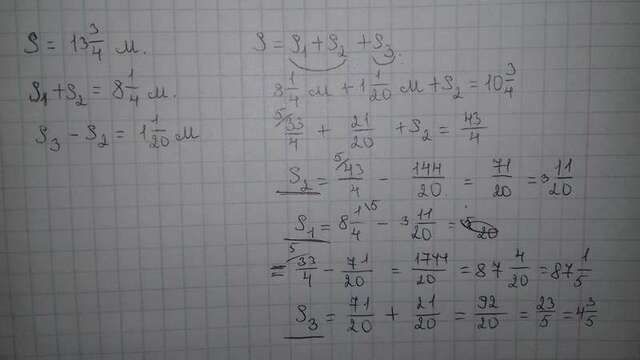 S = 13 3/4 м.
S₁ + S₂ = 8 1/4 м.
S₃ - S₂ = 1 1/20 м
S = S₁ + S₂ + S₃;
8 1/4 м + 1 1/20 м + S₂ = 10 3/4
33/4 + 21/20 + S₂ = 43/4
S₂ = 43/4 - 144/20 = 71/20 = 3 11/20
S₁ = 8 1/4 - 3 11/20 =
= 33/4 - 71/20 = 1744/20 = 87 4/20 = 87 1/5
S₃ = 71/20 + 21/20 = 92/20 = 23/5 = 4 3/5